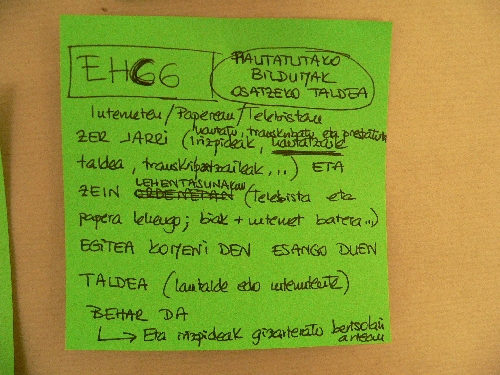 EHGG
HAUTATUTAKO
BILDUMAK
OSATZEKO TALDEA
Interneten/Paperean/Telebistan
hautatu, transkribatu eta prestatuta
ZER JARRI (irizpideak, hautatzaile
taldea, transkripatzaileak,...) ETA
LEHENTASUNAK
ZEIN ORDENETAN (telebista eta
papera lehenengo; biak + internet batera...)
EGITEA KOMENI DEN ESANGO DUEN
TALDEA (lantalde edo
BEHAR DA
Eta irizpideak gizarteratu bertsolari
artean